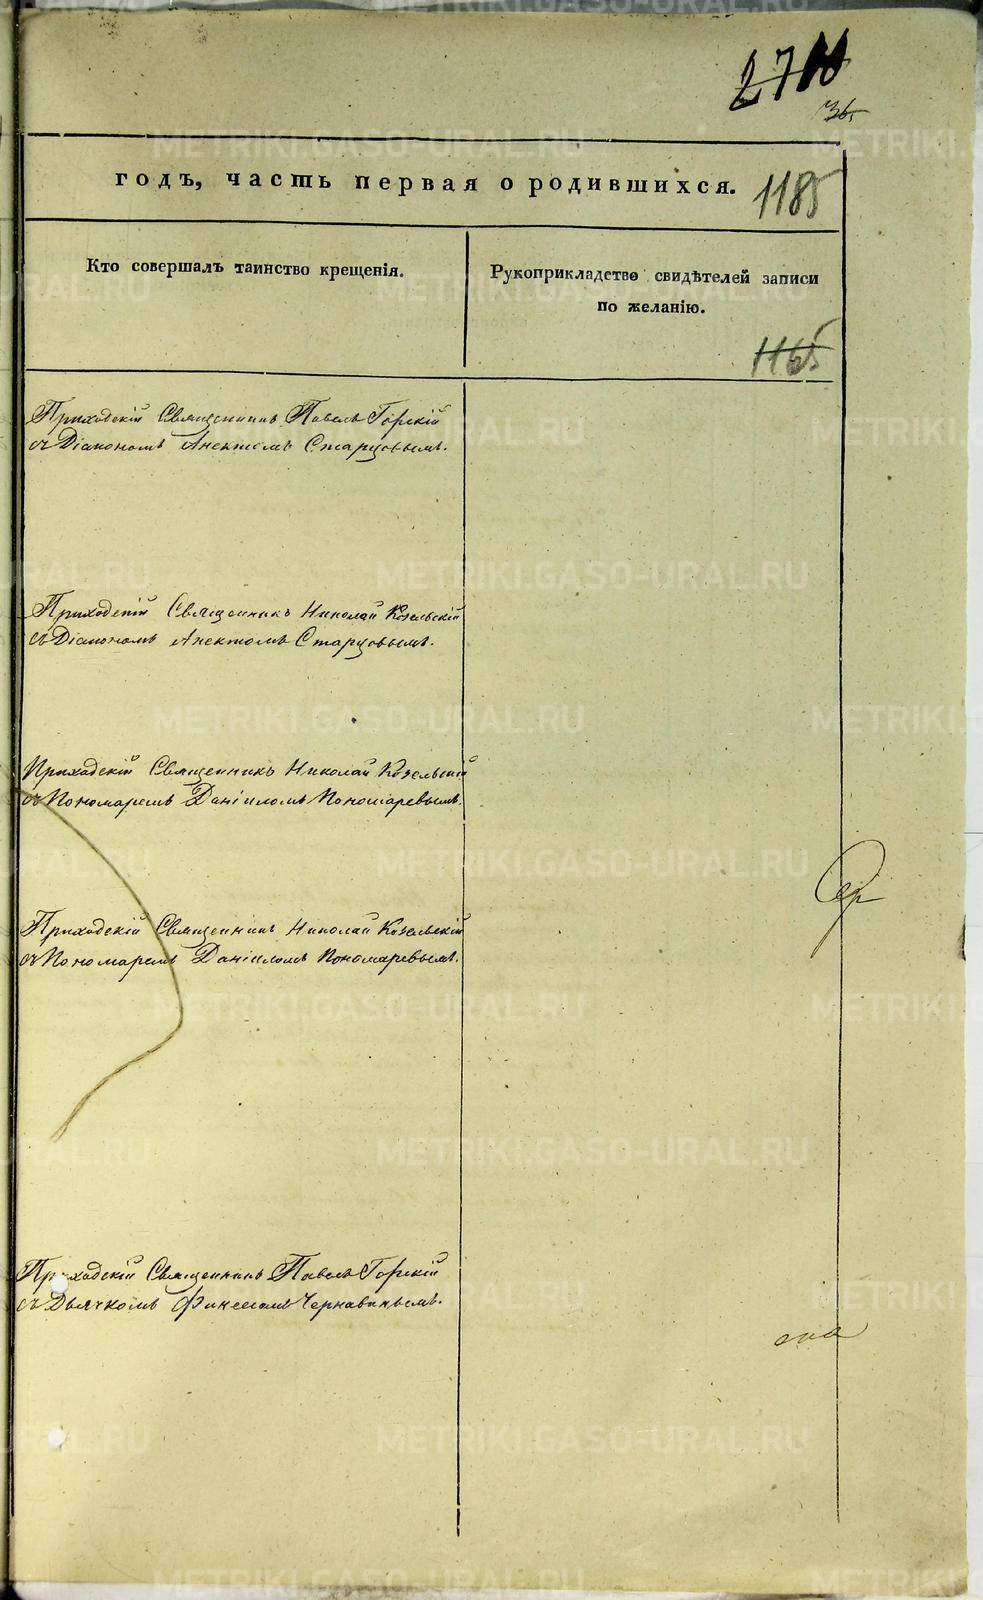 36
годъ, часть первая о родившихся.
1185
Кто совершалъ таинство крещенія.
Рукоприкладство свидѣтелей записи
по желанію.
1165
Приходскій Священникъ Павелъ Горскій
съ Діакономъ Анектомъ Старцовымъ.
Приходскій Священникъ Николай Козельскій
съ Діакономъ Анектомъ Старцовымъ.
Приходскій Священникъ Николай Козельскій
съ Пономаремъ Даніиломъ Пономаревымъ.
Приходскій Священникъ Николай Козельскій
съ Пономаремъ Даніиломъ Пономаревымъ.
Приходскій Священникъ Павелъ Горскій
съ Дьячкомъ Финеесомъ Чернавинымъ.
METRIKI.GASO-URAL.RU